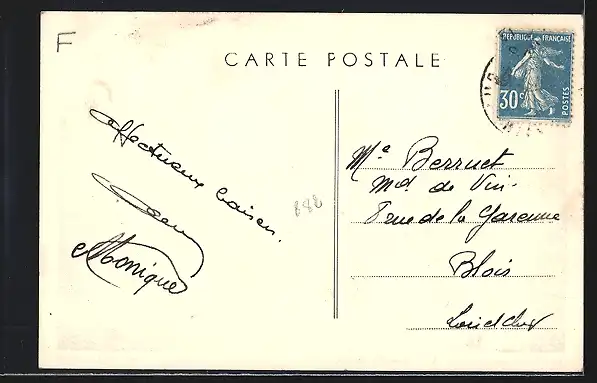 F
CARTE POSTALE
REPUBLIQUE FRANÇAISE
30c
POSTES
Affectueux baisers.
Monique
888
Me Berruet
Md de Vin
rue de la Garenne
Blois
Loir et Cher